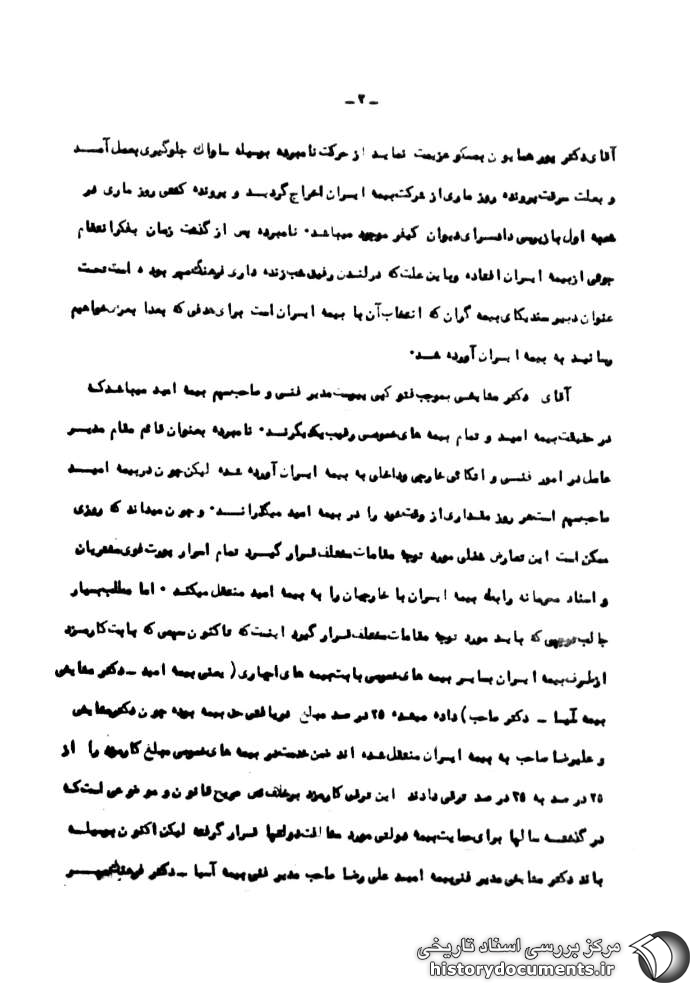 ـ ۳ ـ
آقای دکتر پور همایون بمسکو عزیمت نماید از حرکت نامبرده بوسیله ساواک جلوگیری بعمل آمد
و بعلت سرقت پرونده روز ماری از شرکت بیمه ایران اخراج گردید و پرونده کشتی روز ماری در
شعبه اول بازپرسی دادسرای دیوان کیفر موجود میباشد۰ نامبرده پس از گذشت زمان بفکر انتقام
جوئی از بیمه ایران افتاده و باین علت که در لندن رفیق شب زنده داری فرهنگ مهر بوده است تحت
عنوان دبیر سندیکای بیمه گران که انتخاب آن با بیمه ایران است برای هدفی که بعدا بعرض خواهیم
رسانید به بیمه ایران آورده شد۰
آقای دکتر مشایخی بموجب فتوکپی پیوست مدیر فنی و صاحب سهم بیمه امید میباشد که
در حقیقت بیمه امید و تمام بیمه های خصوصی رقیب یکدیگرند۰ نامبرده بعنوان قائم مقام مدیر
عامل در امور فنی و اتکائی خارجی و داخلی به بیمه ایران آورده شده لیکن چون در بیمه امید
صاحب سهم است هر روز مقداری از وقت خود را در بیمه امید میگذراند۰ و چون میداند که روزی
ممکن است این تعارض شغلی مورد توجه مقامات مختلف قرار گیرد تمام اسرار پورت فوی مشتریان
و اسناد محرمانه رابطه بیمه ایران با خارجیان را به بیمه امید منتقل میکند ۰ اما مطلب بسیار
جالب توجهی که باید مورد توجه مقامات مختلف قرار گیرد اینست که تا کنون سهمی که بابت کارمزد
از طرف بیمه ایران بسایر بیمه های خصوصی بابت بیمه های اجباری ( یعنی بیمه امید ـ دکتر مشایخی
بیمه آسیا ـ دکتر صاحب) داده میشد۰ ۲۵ در صد مبلغ دریافتی حق بیمه بوده چون دکتر مشایخی
و علیرضا صاحب به بیمه ایران منتقل شده اند ضمن خدمت در بیمه های خصوصی مبلغ کارمزد را از
۲۵ در صد به ۳۵ در صد ترقی دادند این ترقی کارمزد بر خلاف نص صریح قانون و موضوعی است که
در گذشته سالها برای حمایت بیمه دولتی مورد مخالفت دولتها قرار گرفته لیکن اکنون بوسیله
باند دکتر مشایخی مدیر فنی بیمه امید علی رضا صاحب مدیر فنی بیمه آسیا ـ دکتر فرهنگ مهر
مرکز بررسی اسناد تاریخی
historydocuments.ir